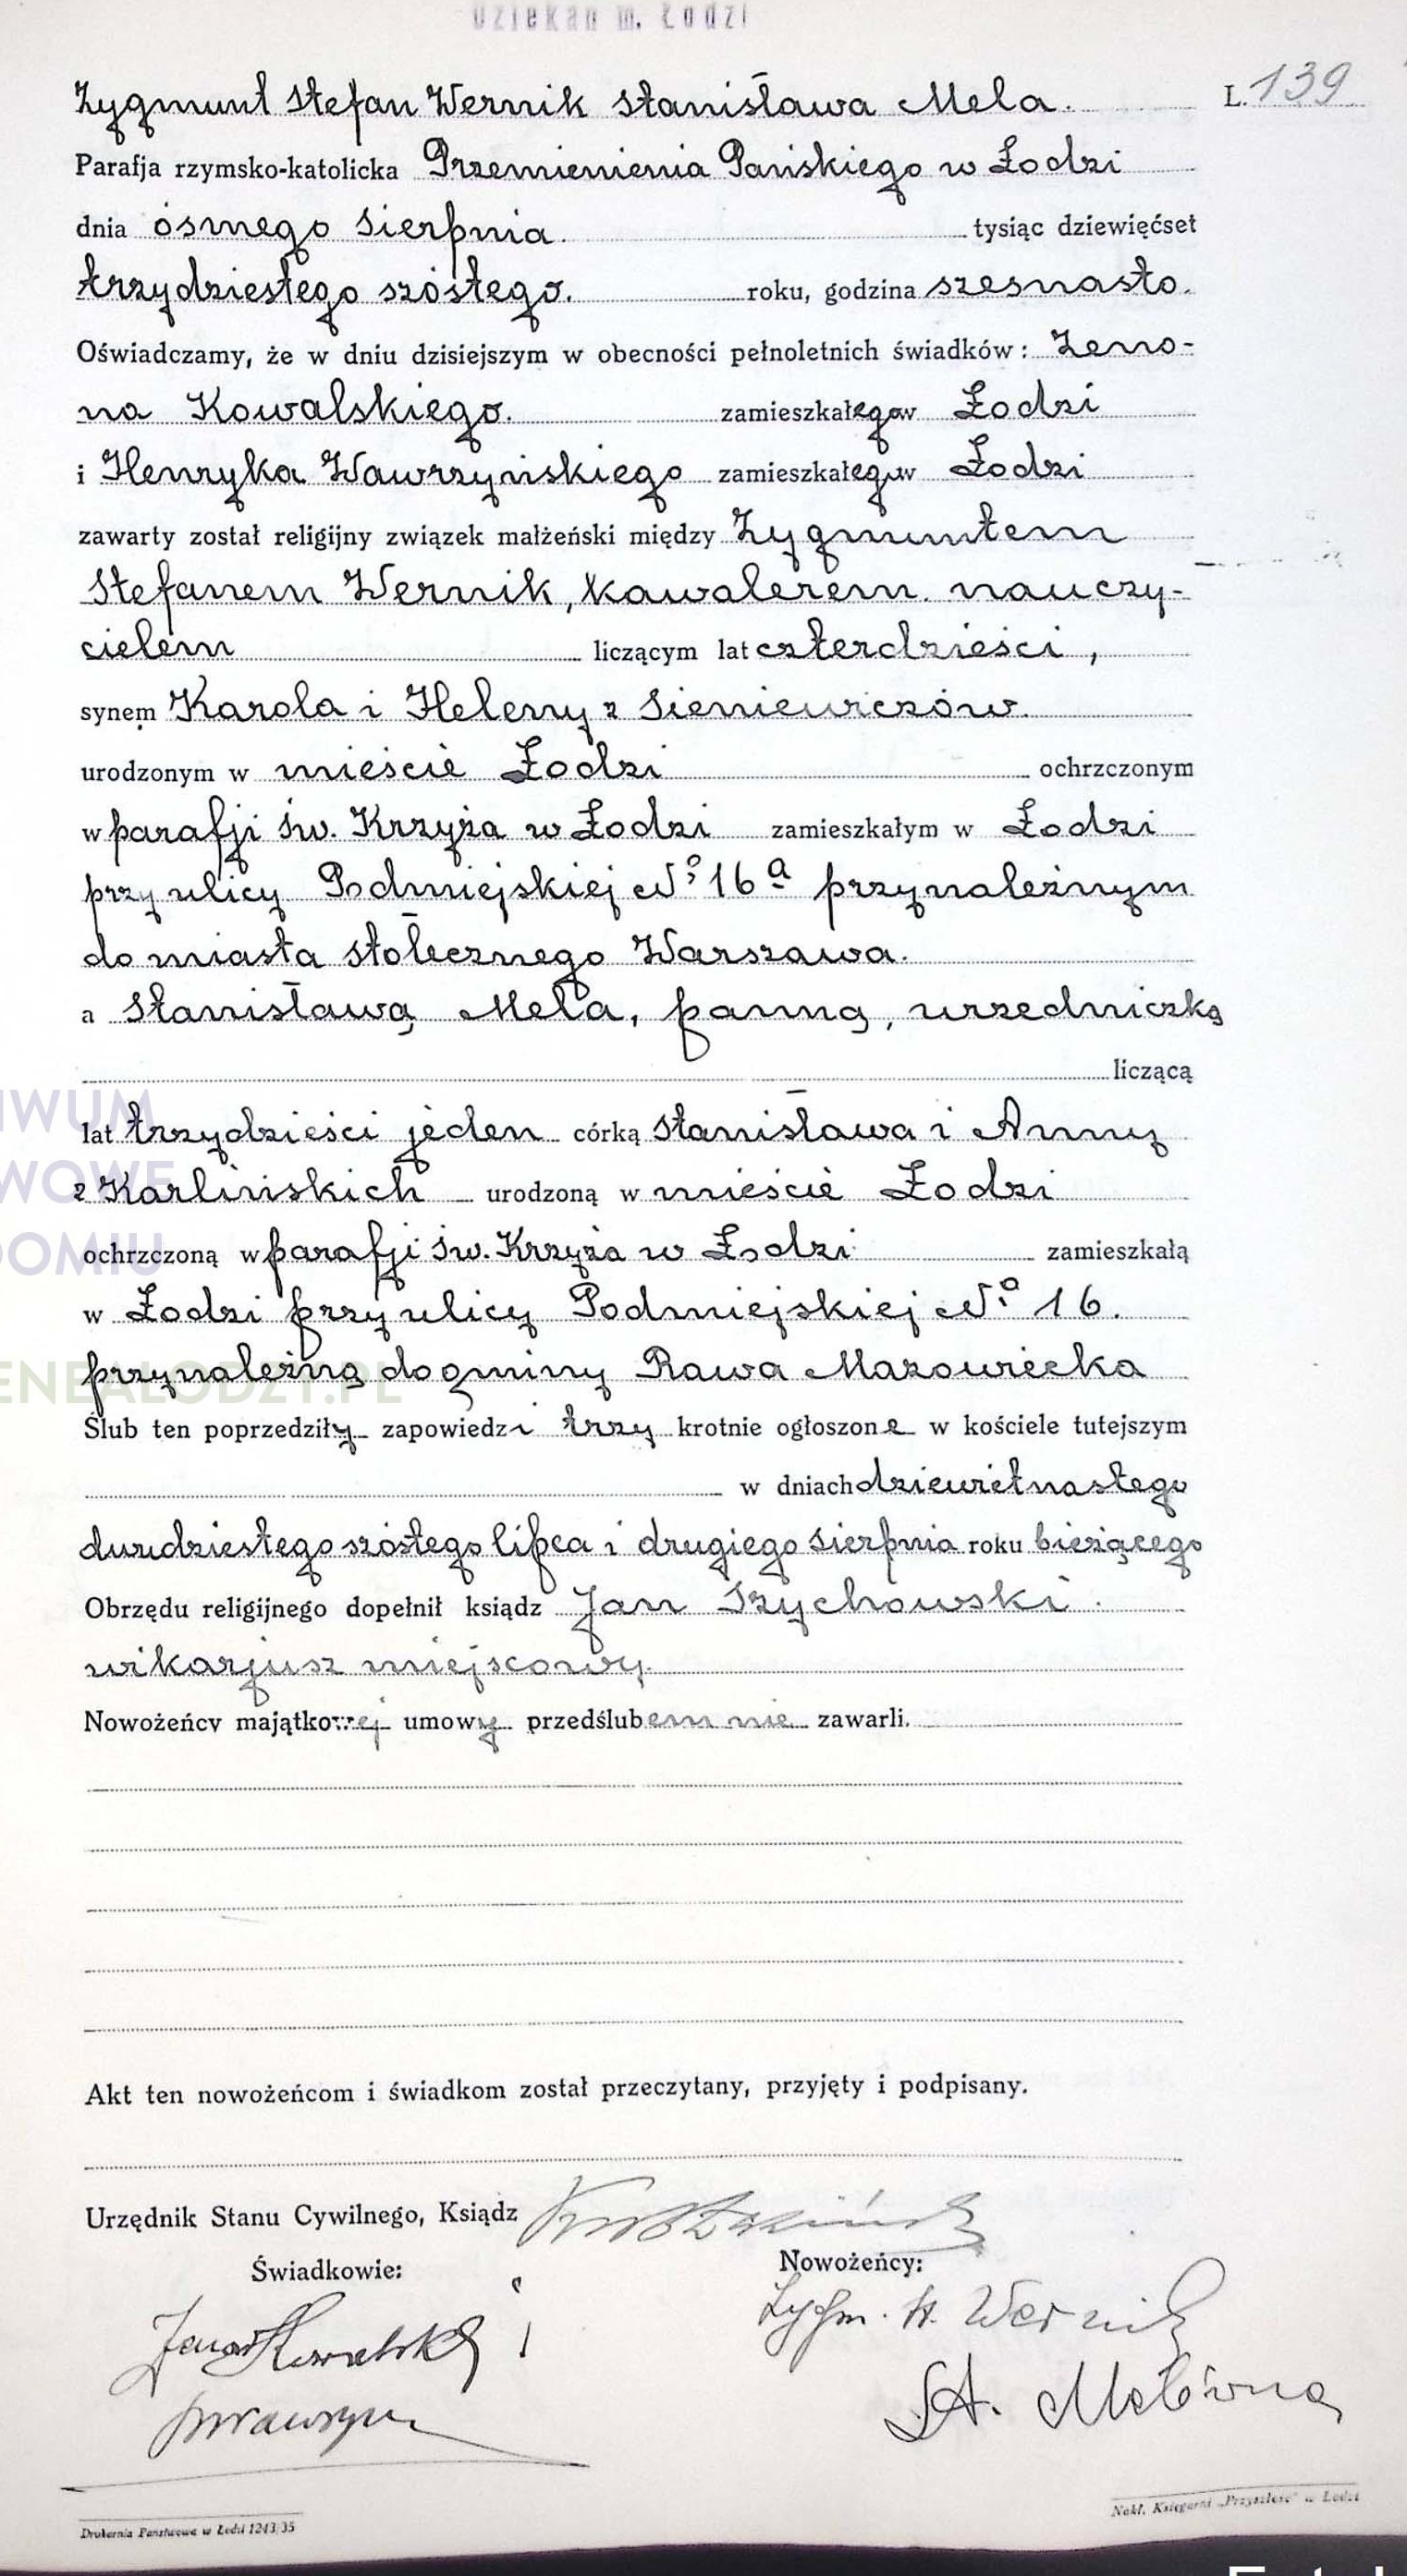 Dziekan m. Łodzi
Zygmunt Stefan Wernik Stanisława Mela.
L. 139
Parafja rzymsko-katolicka Przemienienia Pańskiego w Łodzi
dnia ósmego sierpnia. tysiąc dziewięćset
trzydziestego szóstego. roku, godzina szesnasta.
Oświadczamy, że w dniu dzisiejszym w obecności pełnoletnich świadków: Zeno-
na Kowalskiego. zamieszkałego w Łodzi
i Henryka Wawrzyńskiego zamieszkałego w Łodzi
zawarty został religijny związek małżeński między Zygmuntem
Stefanem Wernik, kawalerem. nauczy-
cielem liczącym lat czterdzieści,
synem Karola i Heleny z Sieniewiczów.
urodzonym w mieście Łodzi ochrzczonym
w parafji św. Krzyża w Łodzi zamieszkałym w Łodzi
przy ulicy Podmiejskiej № 16a przynależnym
do miasta stołecznego Warszawa.
a Stanisławą Mela, panną, urzedniczką
liczącą
lat trzydzieści jeden córką Stanisława i Anny
z Karlińskich urodzoną w mieście Łodzi
ochrzczoną w parafji św. Krzyża w Łodzi zamieszkałą
w Łodzi przy ulicy Podmiejskiej № 16.
przynależną do gminy Rawa Mazowiecka
Ślub ten poprzedziły zapowiedzi trzy krotnie ogłoszone w kościele tutejszym
w dniach dziewiętnastego
dwudziestego szóstego lipca i drugiego sierpnia roku bieżącego
Obrzędu religijnego dopełnił ksiądz Jan Szychowski.
wikarjusz miejscowy.
Nowożeńcy majątkowej umowy przedślubem nie zawarli.
Akt ten nowożeńcom i świadkom został przeczytany, przyjęty i podpisany.
Urzędnik Stanu Cywilnego, Ksiądz
Świadkowie:
Nowożeńcy:
Zenon Kowalski
Zygm. St. Wernik
St. Melówna
Drukarnia Państwowa w Łodzi 1243/35
Nakł. Księgarni „Przyszłość" w Łodzi
IWUM
WOWE
DOMIU
ENEALODZY.PL